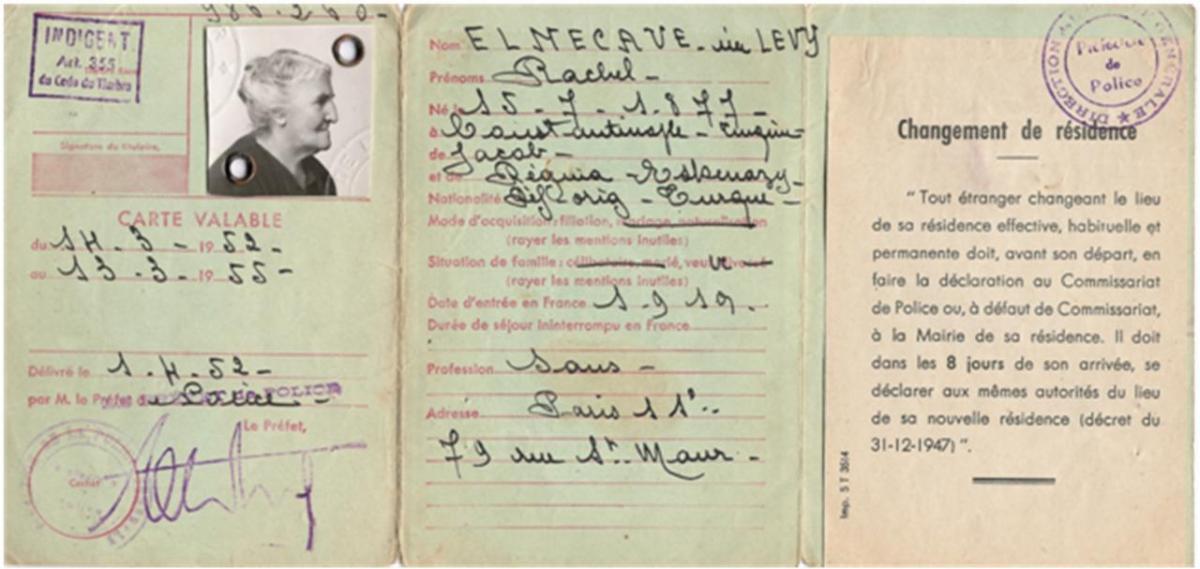 986.260-
INDIGENT
Art. 355
du Code du Timbre
Signature du titulaire,
CARTE VALABLE
du 14-3-1952-
au 13-3-1955-
Délivré le 1-4-52-
par M. le Préfet de Police -
POLICE
Le Préfet,
Nom ELNECAVE née LEVY
Prénoms Rachel -
Né le 15-7-1.877-
à Constantinople - Turquie
de Jacob -
et de
Nationalité Réf. orig. Turque -
Mode d'acquisition : filiation, mariage, naturalisation
(rayer les mentions inutiles)
Situation de famille : célibataire, marié, veuf, divorcé
(rayer les mentions inutiles)
Date d'entrée en France 1.919-
Durée de séjour ininterrompu en France
Profession Sans -
Adresse Paris 11e.
79 rue St. Maur -
DIRECTION GÉNÉRALE
Préfecture
de
Police
Changement de résidence
" Tout étranger changeant le lieu
de sa résidence effective, habituelle et
permanente doit, avant son départ, en
faire la déclaration au Commissariat
de Police ou, à défaut de Commissariat,
à la Mairie de sa résidence. Il doit
dans les 8 jours de son arrivée, se
déclarer aux mêmes autorités du lieu
de sa nouvelle résidence (décret du
31-12-1947) ".
Imp. S T 3514